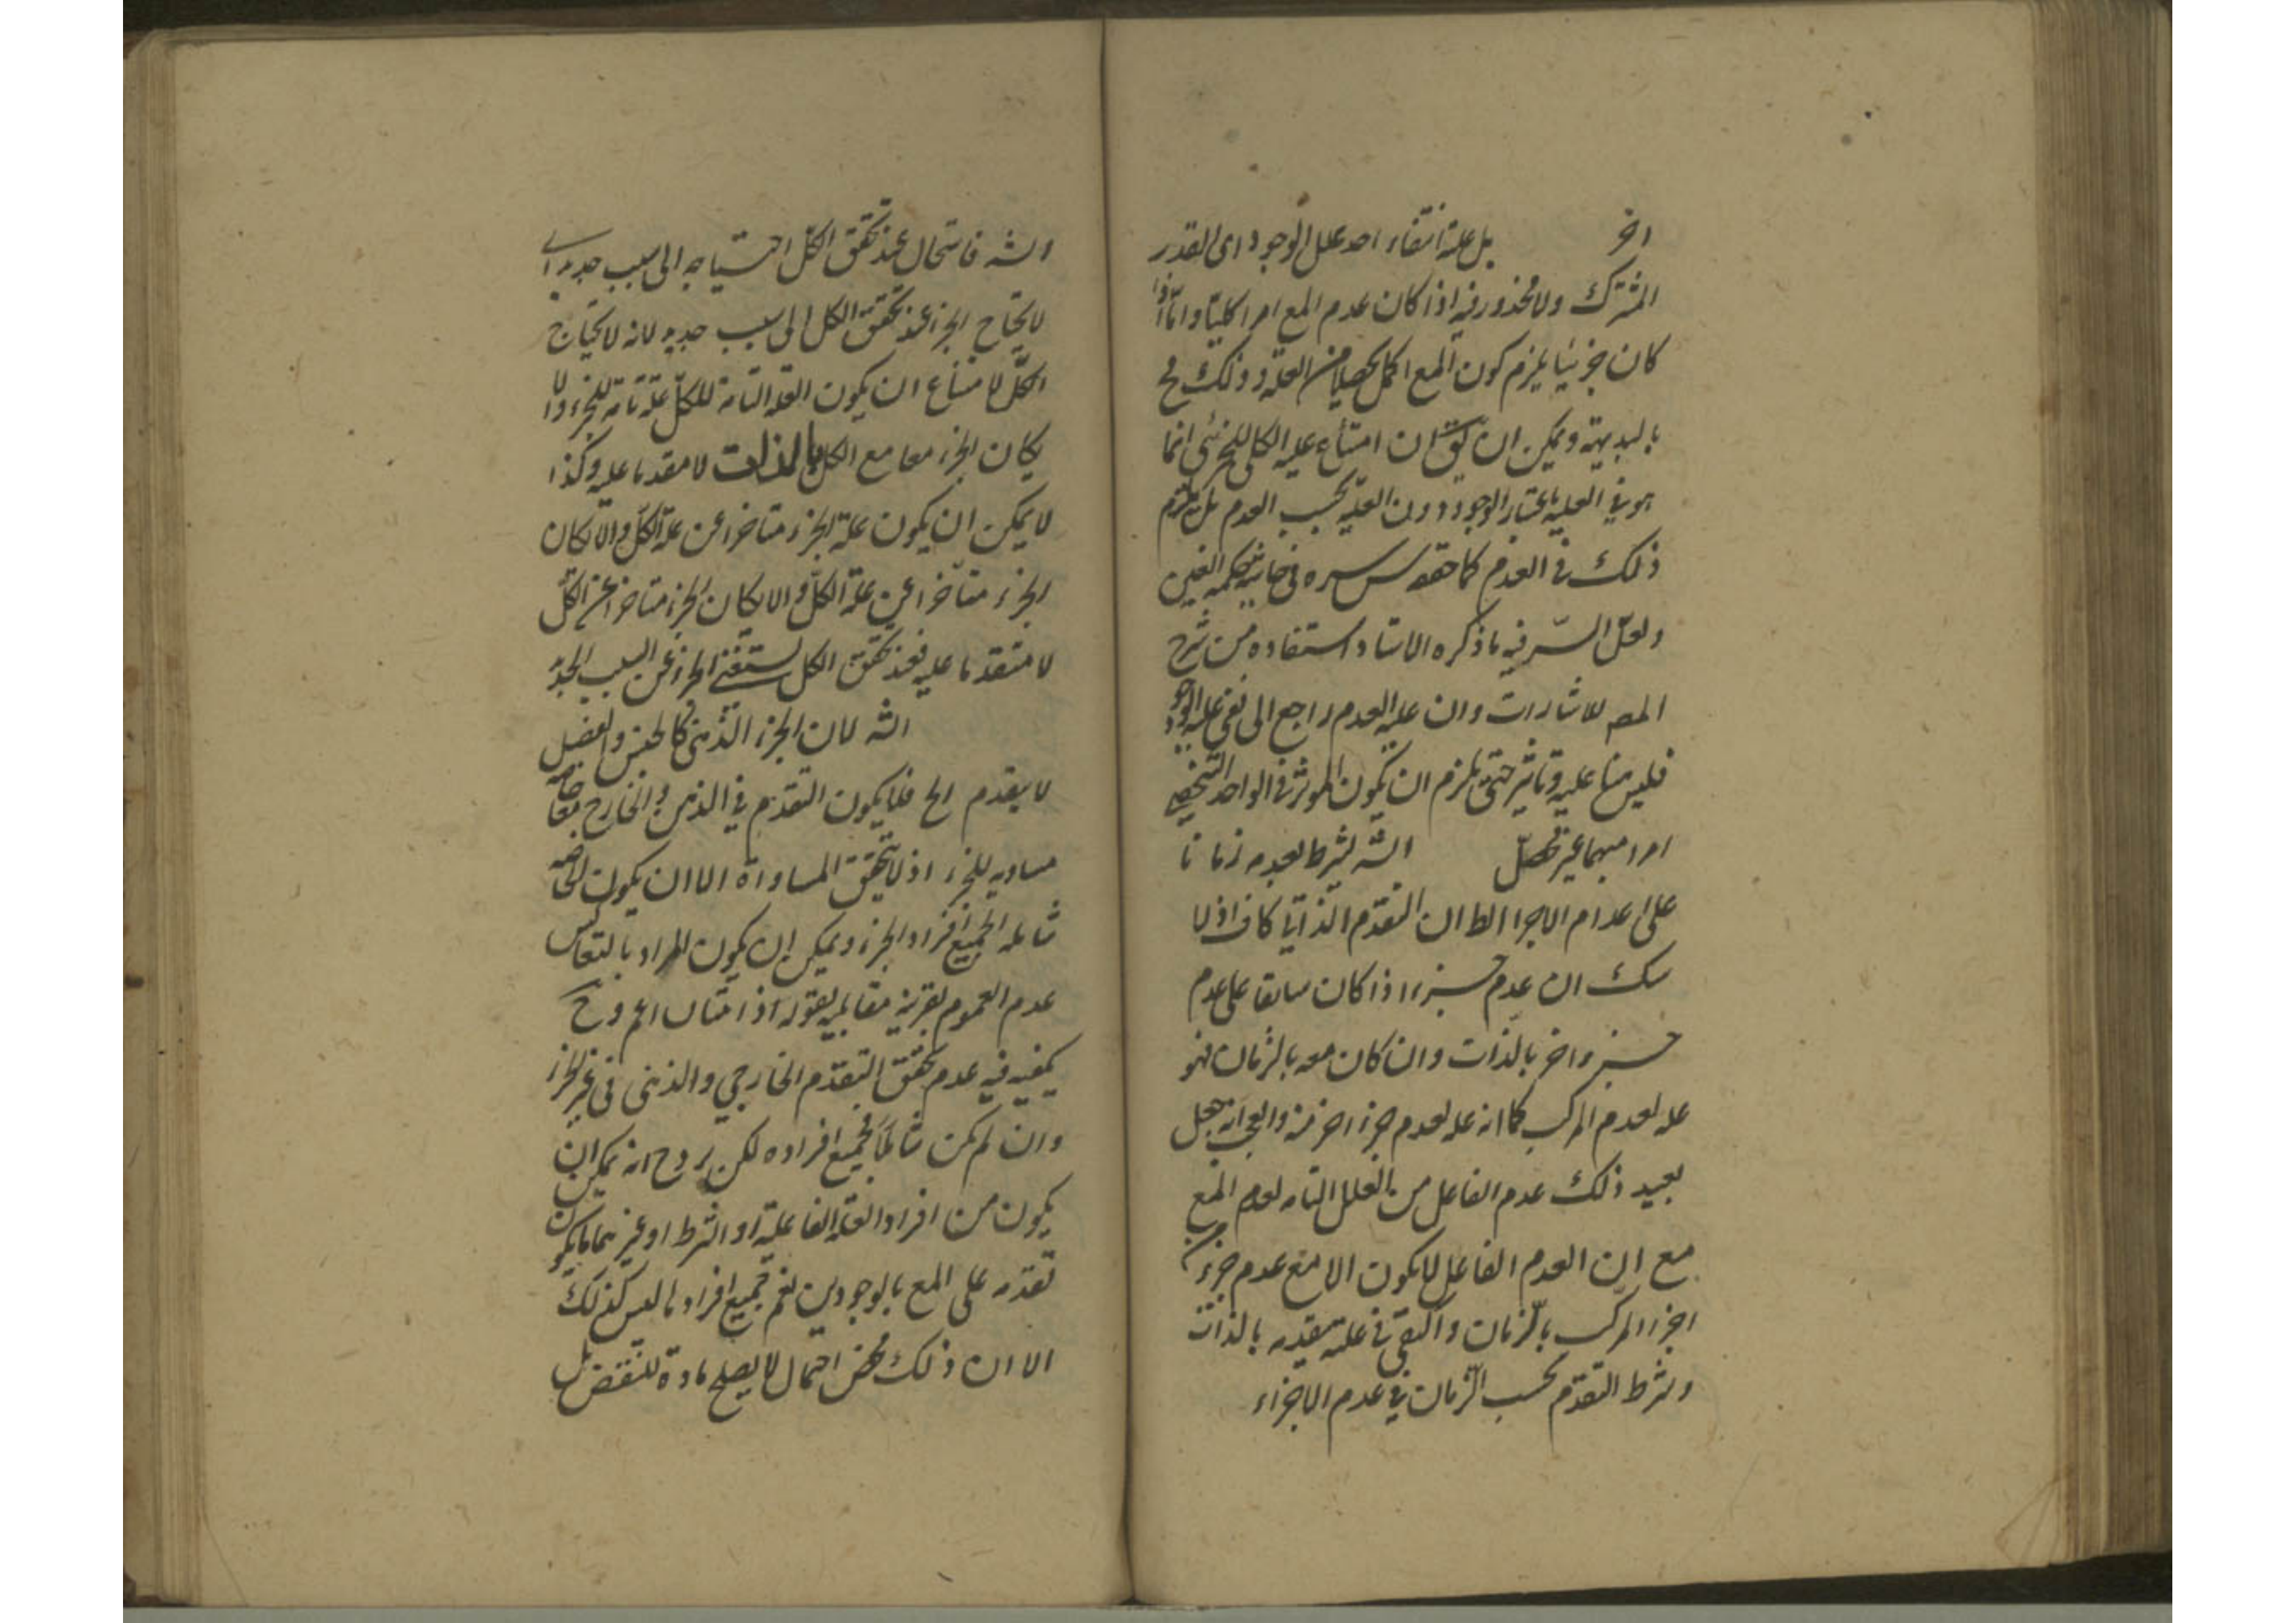 اخر بل علة انتفاء احد علل الوجود اى القدر
المشترك ولا محذور فيه اذا كان عدم المع امرا كليا واما اذا
كان جزئيا يلزم كون المع اكمل تحصلا من العلة وذلك مح
بالبديهة ويمكن ان يق ان امتناع علية الكلى للجزئى انما
هو في العلية باعتبار الوجود دون العلية بحسب العدم بل يلتزم
ذلك في العدم كما حققه س سره فى حاشية حكمة العين
ولعل السر فيه ما ذكره الاستاد استفاده من شرح
المص للاشارات وان علية العدم راجع الى نفى علية الوجود
فليس هنا علية وتاثير حتى يلزم ان يكون الموثر فى الواحد الشخصى
امرا مبهما غير محصل الشه لشرط بعدمه زمانا
على اعدام الاجزا الظ ان التقدم الذاتى كاف اذ لا
شك ان عدم جزء اذا كان سابقا على عدم
جزء اخر بالذات وان كان معه بالزمان فهو
عله لعدم المركب كما انه عله لعدم جزء اخر منه والعجب انه جعل
بعيد ذلك عدم الفاعل من العلل التامه لعدم المع
مع ان العدم الفاعل لا يكون الا مع عدم جزء من
اجزاء المركب بالزمان واكتفى فى علته بتقدمه بالذات
وشرط التقدم بحسب الزمان في عدم الاجزاء
الشه فاستحال عند تحقق الكل احتياجه الى سبب جديد اى
لا يحتاج الجزء عند تحقق الكل الى سبب جديد لانه لا يحتاج
الكل لامتناع ان يكون العلة التامة للكل علة تامة للجزء والا
لكان الجزء معا مع الكل بالذات لا مقدما عليه وكذا
لا يمكن ان يكون علة الجزء متاخرا عن علة الكل والا لكان
الجزء متاخرا عن علة الكل والا لكان الجزء متاخرا عن الكل
لا متقدما عليه فعند تحقق الكل يستغنى الجزء عن السبب الجديد
الشه لان الجزء الذهنى كالجنس والفصل
لا يقدم الخ فلا يكون التقدم في الذهن والخارج معا خاصه
مساويه للجزء اذ لا يتحقق المساواة الا ان يكون الخاصه
شامله لجميع افراد الجزء ويمكن ان يكون المراد بالتعاكس
عدم العموم بقرينة مقابلته بقوله اذ الثانى اعم وح
يكفيه فيه عدم تحقق التقدم الخارجي والذهنى فى غير الجزء
وان لم يكن شاملا لجميع افراده لكن يرد ح انه يمكن ان
يكون من افراد العلة الفاعلية او الشرط او غيرهما ما يكون
تقدمه على المع بالوجودين نعم جميع افرادها ليس كذلك
الا ان ذلك محض احتمال لا يصلح مادة للنقض بل